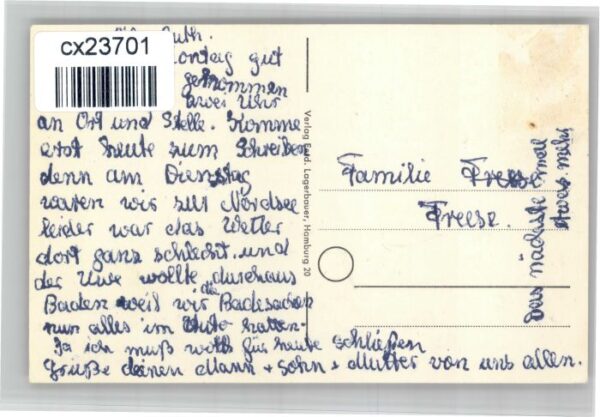 cx23701
Ruth.
gut
gekommen
zwei Uhr
an Ort und Stelle. Komme
erst heute zum Schreiben
denn am Dienstag
waren wir zur Nordsee
leider war das Wetter
dort ganz schlecht. und
der Uwe wollte durchaus
Baden weil wir die Badesachen
nun alles im Auto hatten.
Ja ich muß wohl für heute schließen
Grüße deinen Mann + Sohn + Mutter von uns allen.
Verlag Ferd. Lagerbauer, Hamburg 20
Familie Freese
Freese.
Das nächste mal
etwas mehr